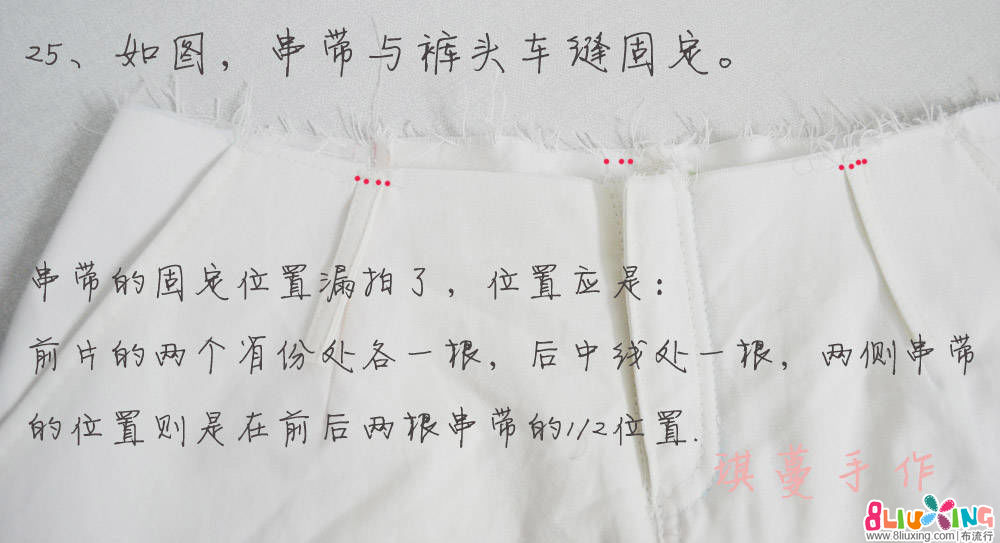 25、如图，串带与裤头车缝固定。
串带的固定位置漏拍了，位置应是：
前片的两个省份处各一根，后中线处一根，两侧串带
的位置则是在前后两根串带的1/2位置.
琪蔓手作
8LIUXING
www.8liuxing.com|布流行